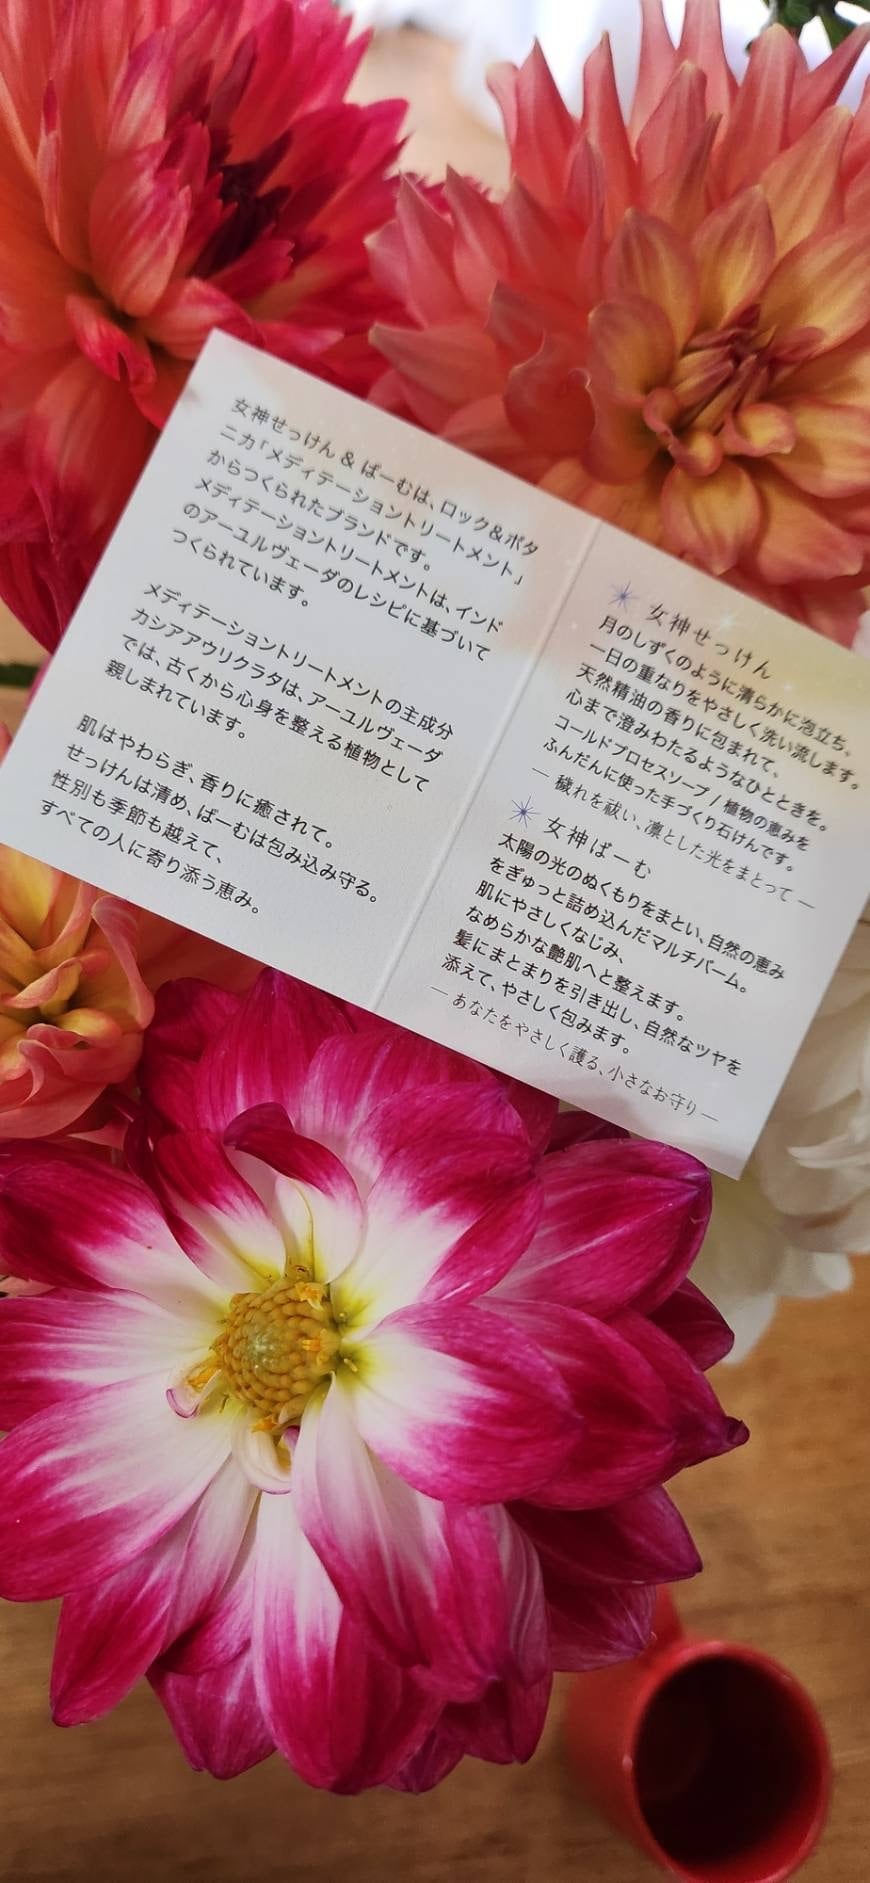 女神せっけん & ばーむは、ロック&ボタ
ニカ「メディテーショントリートメント」
からつくられたブランドです。
メディテーショントリートメントは、インド
のアーユルヴェーダのレシピに基づいて
つくられています。
メディテーショントリートメントの主成分
カシアアウリクラタは、アーユルヴェーダ
では、古くから心身を整える植物として
親しまれています。
肌はやわらぎ、香りに癒されて。
せっけんは清め、ばーむは包み込み守る。
性別も季節も越えて、
すべての人に寄り添う恵み。
女神せっけん
月のしずくのように清らかに泡立ち、
一日の重なりをやさしく洗い流します。
天然精油の香りに包まれて、
心まで澄みわたるようなひとときを。
コールドプロセスソープ / 植物の恵みを
ふんだんに使った手づくり石けんです。
― 穢れを祓い、凛とした光をまとって ―
女神ばーむ
太陽の光のぬくもりをまとい、自然の恵み
をぎゅっと詰め込んだマルチバーム。
肌にやさしくなじみ、
なめらかな艶肌へと整えます。
髪にまとまりを引き出し、自然なツヤを
添えて、やさしく包みます。
― あなたをやさしく護る、小さなお守り ―